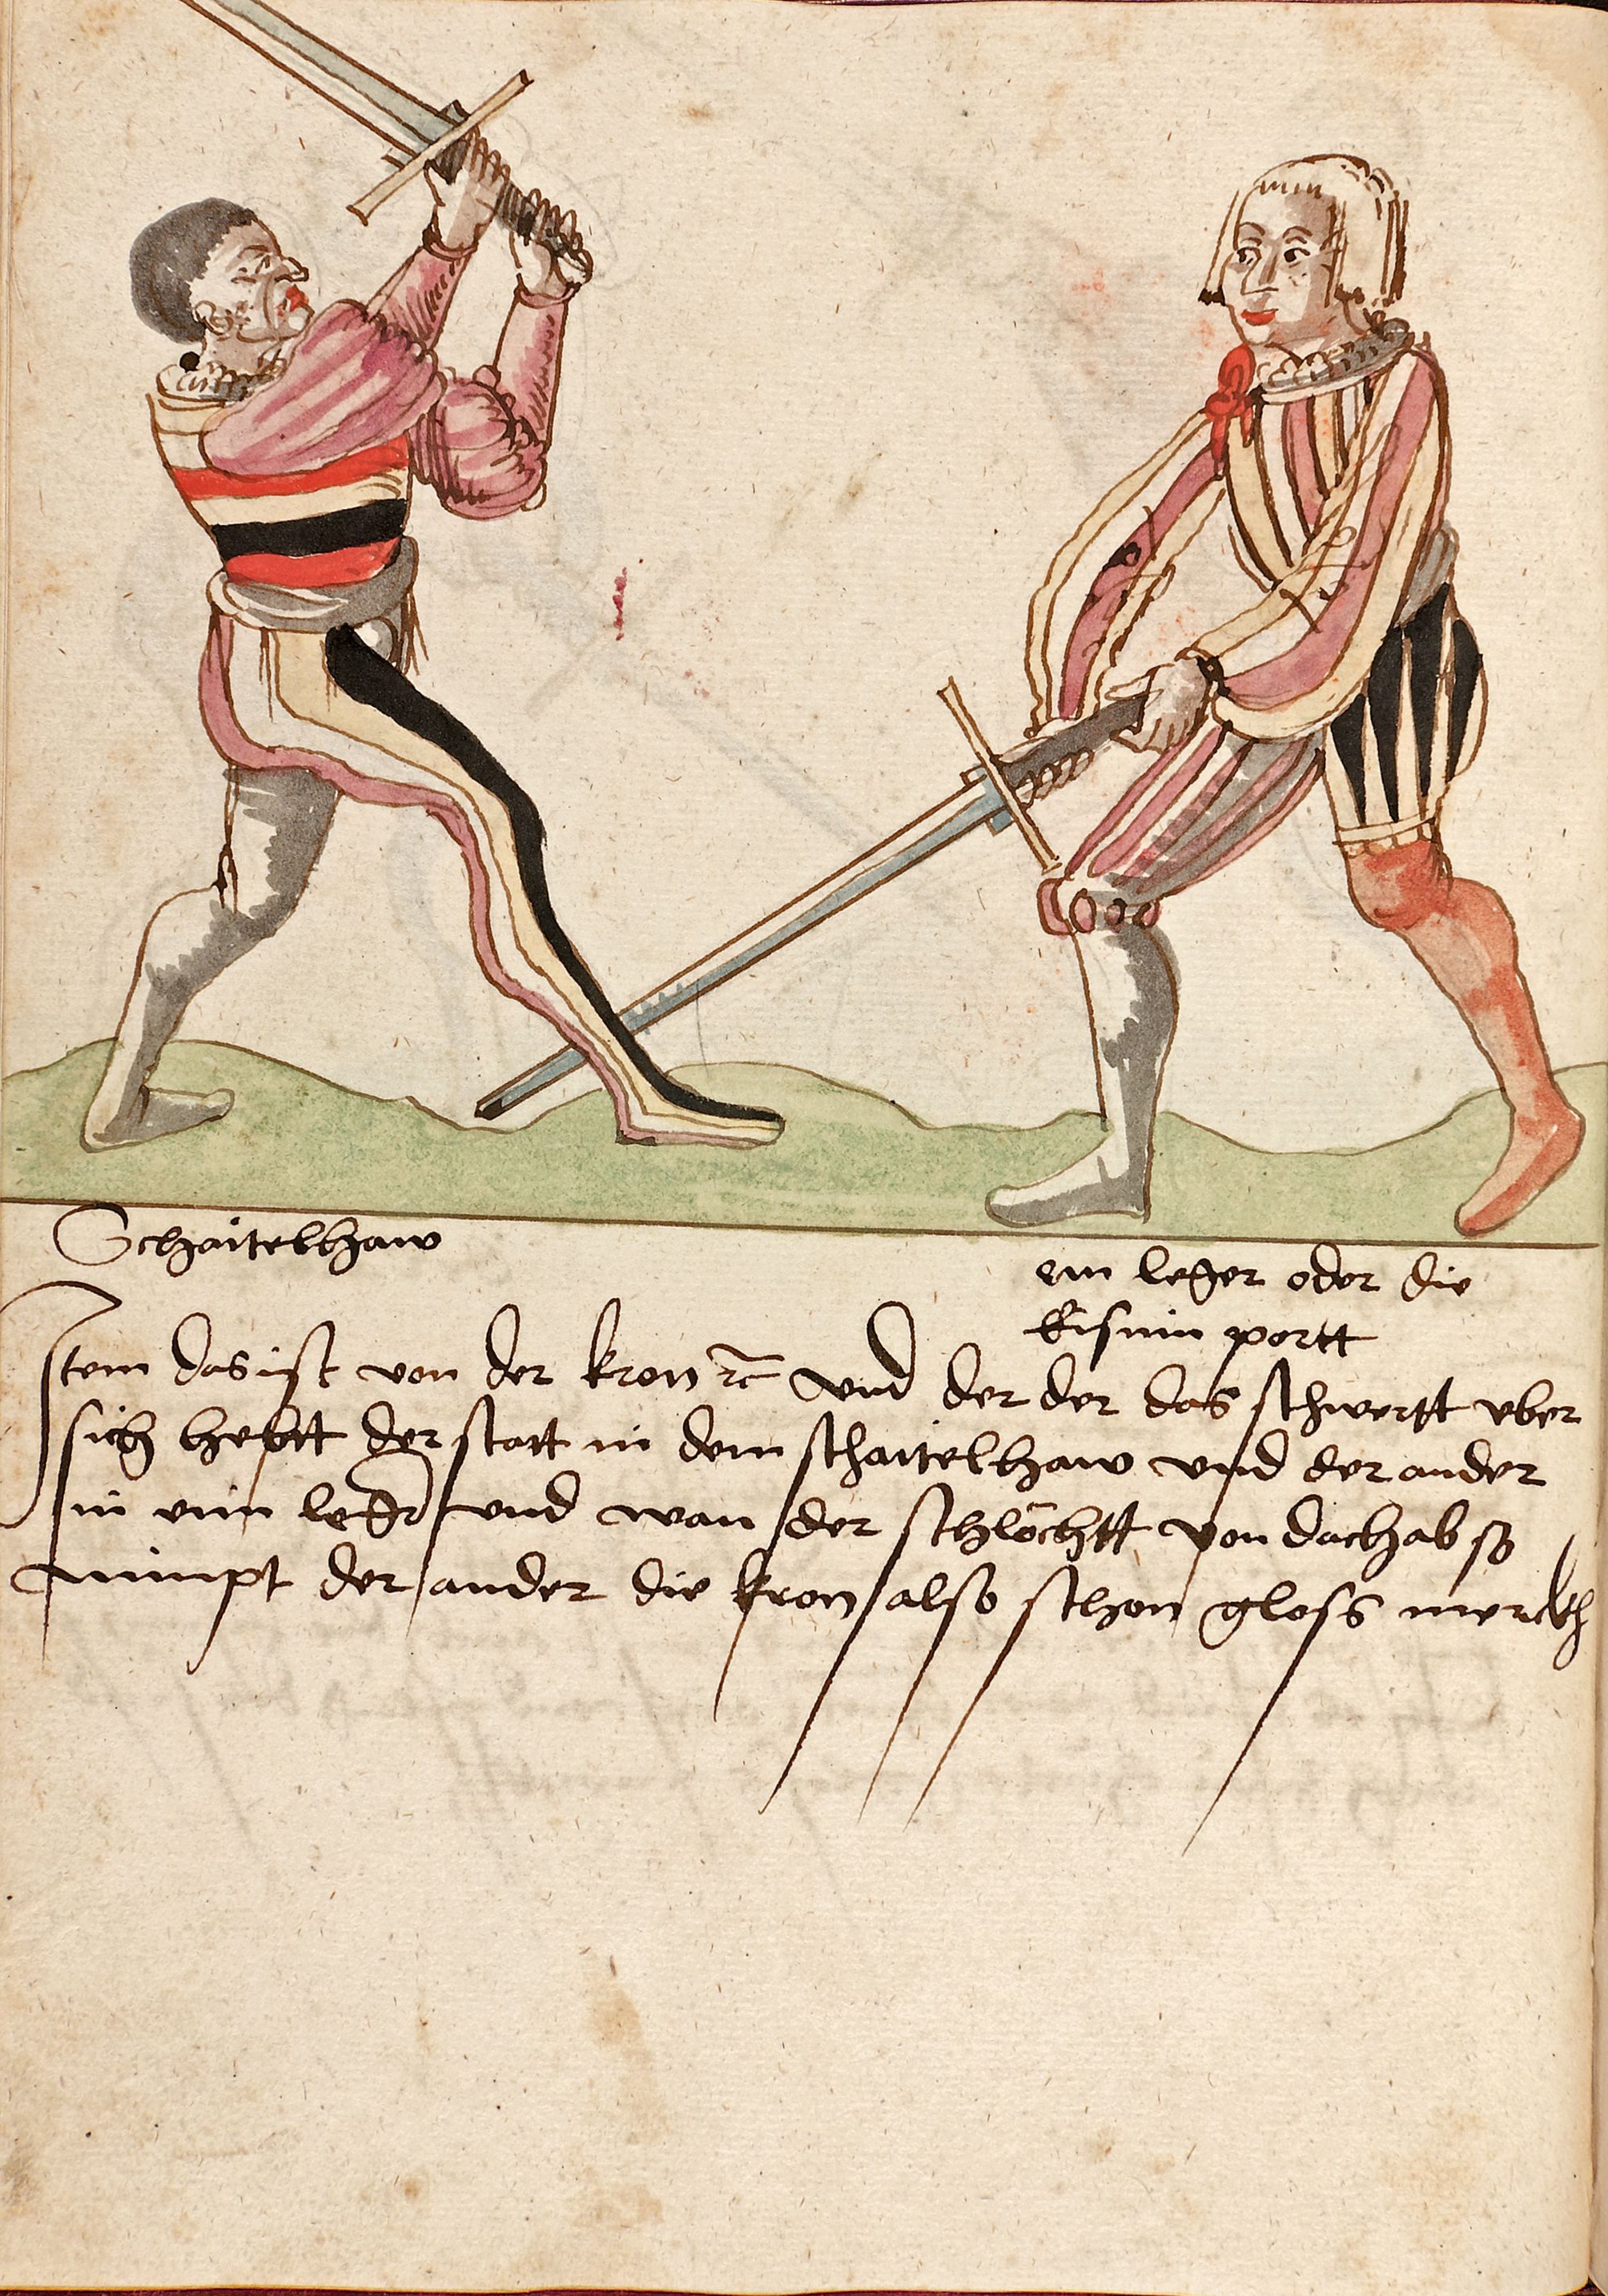 Schaitelhaw
ein leger oder die
Eisnin portt
Item das ist von der kron rc und der der das schwertt uber
sich hebtt der statt in dem schaitelhaw und der ander
in ein leger und wan der schlöchtt von dach ab so
nimpt der ander die kron also schon gloss merckh